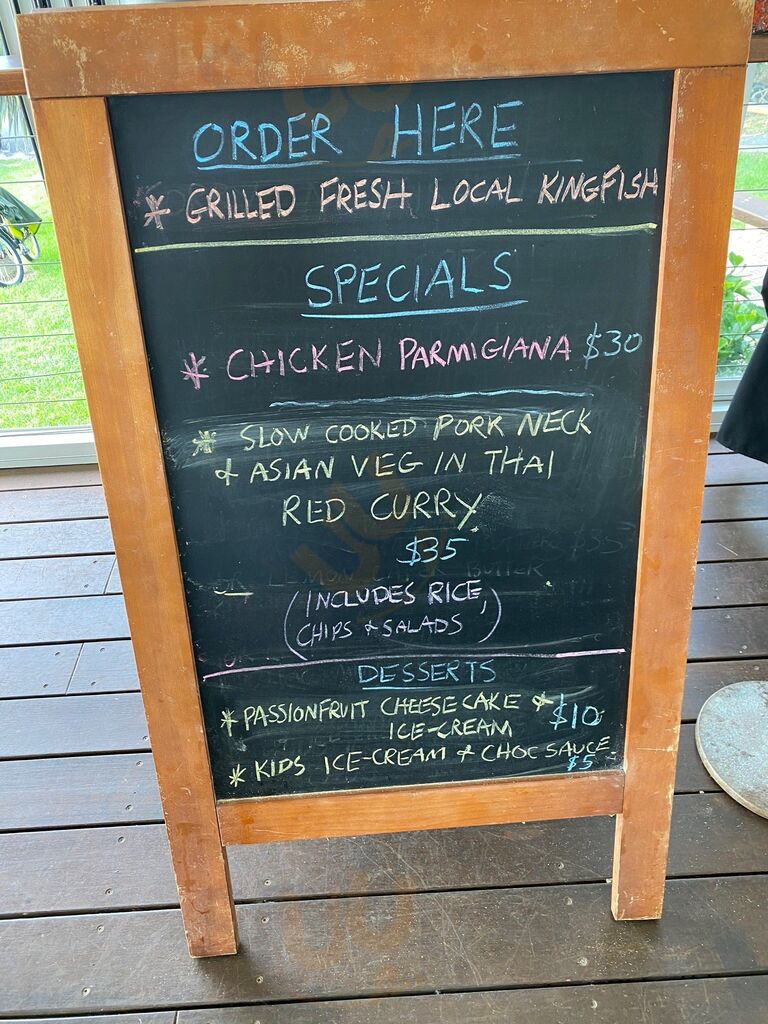 ORDER HERE
* GRILLED FRESH LOCAL KINGFISH
SPECIALS
* CHICKEN PARMIGIANA $30
* SLOW COOKED PORK NECK
& ASIAN VEG IN THAI
RED CURRY
$35
(INCLUDES RICE,
CHIPS & SALADS)
DESSERTS
* PASSIONFRUIT CHEESECAKE & $10
ICE-CREAM
* KIDS ICE-CREAM & CHOC SAUCE
$5